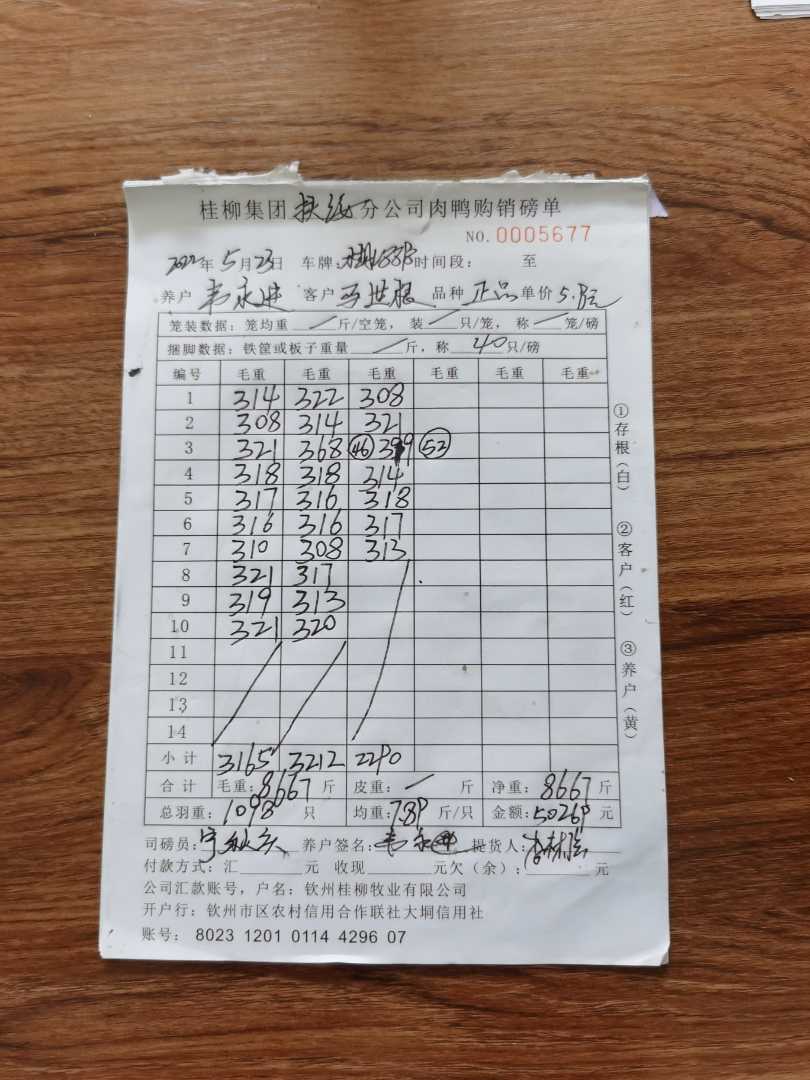 桂柳集团 扶绥 分公司肉鸭购销磅单
NO. 0005677
2022年 5月23日 车牌: 时间段: 至
养户 韦永进 客户 品种 正品 单价 5.8元
笼装数据: 笼均重 / 斤/空笼, 装 / 只/笼, 称 / 笼/磅
捆脚数据: 铁筐或板子重量 / 斤, 称 40 只/磅
编号 毛重 毛重 毛重 毛重 毛重 毛重
1 314 322 308
2 308 314 321
3 321 368 46 399 52
4 318 318 314
5 317 316 318
6 316 316 317
7 310 308 313
8 321 317
9 319 313
10 321 320
11
12
13
14
小计 3165 3212 2290
合计 毛重: 8667 斤 皮重: / 斤 净重: 8667 斤
总羽重: 1098 只 均重: 7.89 斤/只 金额: 50269 元
司磅员: 养户签名: 韦永进 提货人:
付款方式: 汇 元 收现 元欠(余): 元
公司汇款账号, 户名: 钦州桂柳牧业有限公司
开户行: 钦州市区农村信用合作联社大垌信用社
账号: 8023 1201 0114 4296 07
①存根(白)
②客户(红)
③养户(黄)